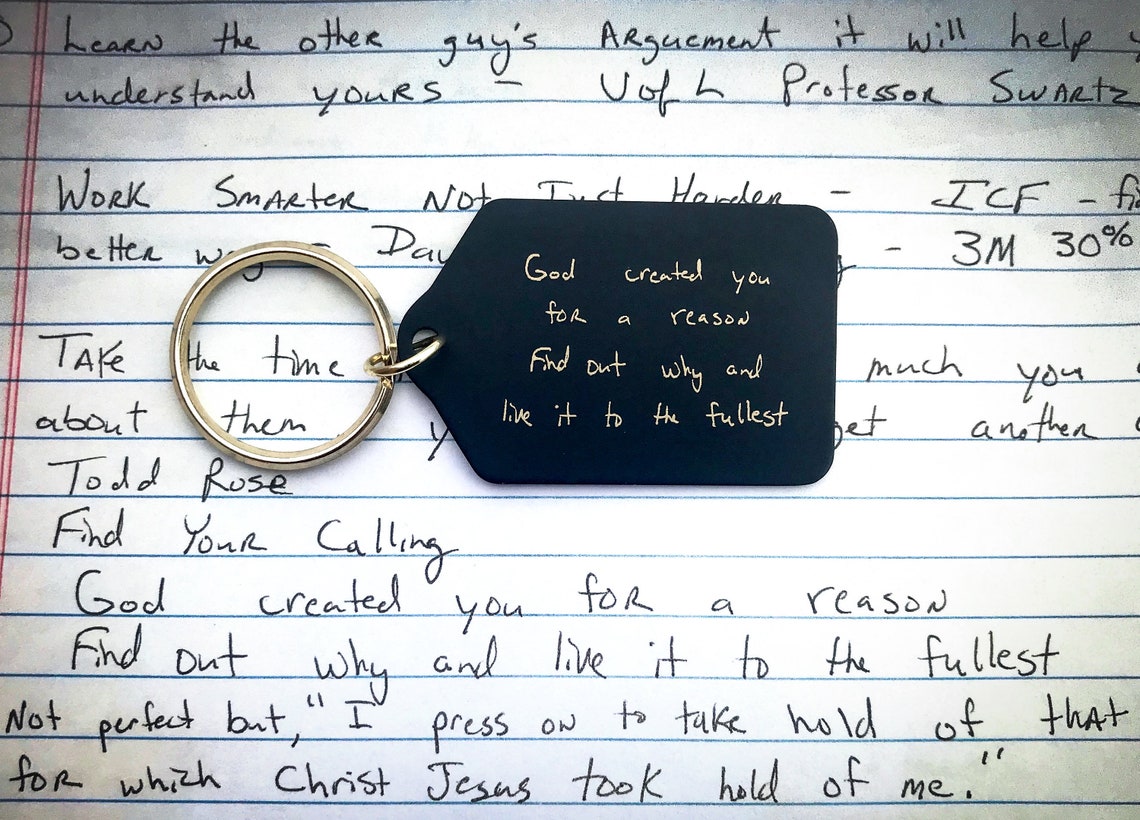 Learn the other guy's Arguement it will help
understand yours - U of L Professor Swartz
Work Smarter Not Just Harder - ICF -
better - - 3M 30%
Take the time much you
about them another
Todd Rose
Find Your Calling
God created you for a reason
Find out why and live it to the fullest
Not perfect but, "I press on to take hold of that
for which Christ Jesus took hold of me."
God created you
for a reason
Find out why and
live it to the fullest